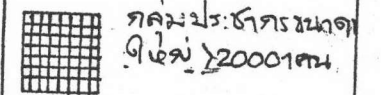 กลุ่มประชากรขนาด
ใหญ่ >20000คน